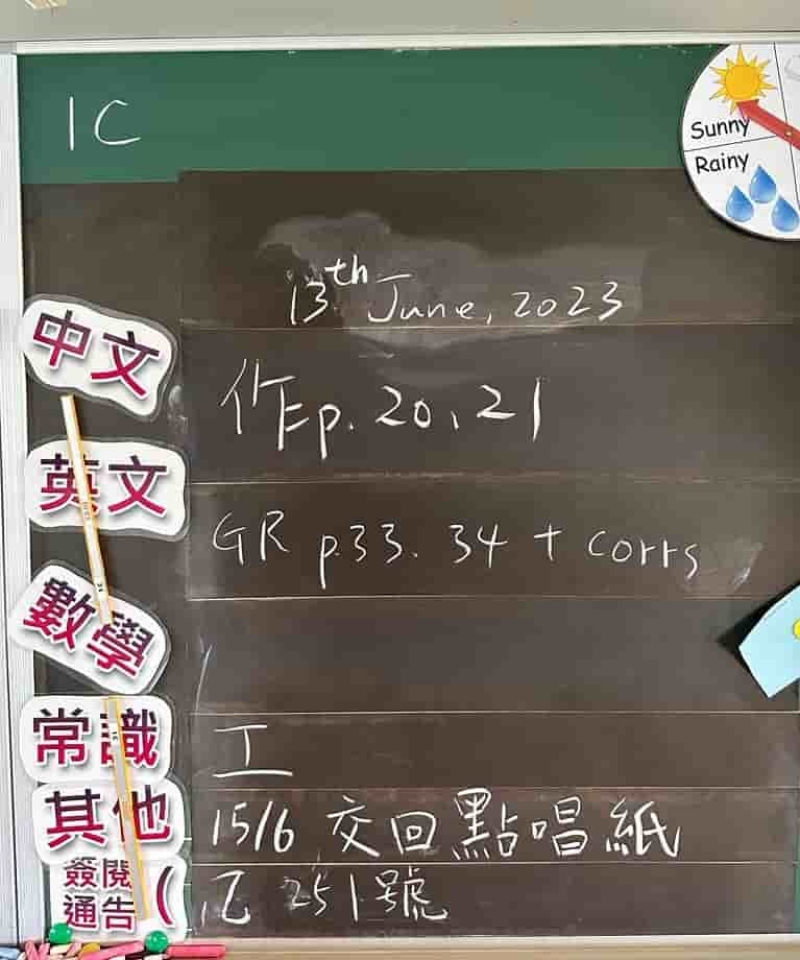 1C
Sunny
Rainy
13th June, 2023
中文 作p. 20、21
英文 GR p.33. 34 + corrs
數學
常識 工
其他 15/6 交回點唱紙
簽閱通告( 乙 251號